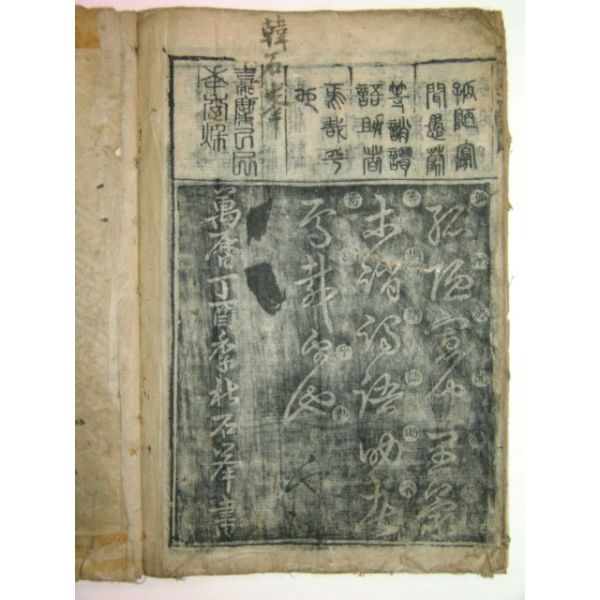 韓石峯
孤陋寡
聞愚蒙
等誚謂
語助者
焉哉乎
也
嘉慶
孤陋寡聞愚蒙
等誚謂語助者
焉哉乎也
萬曆丁酉季秋石峯書